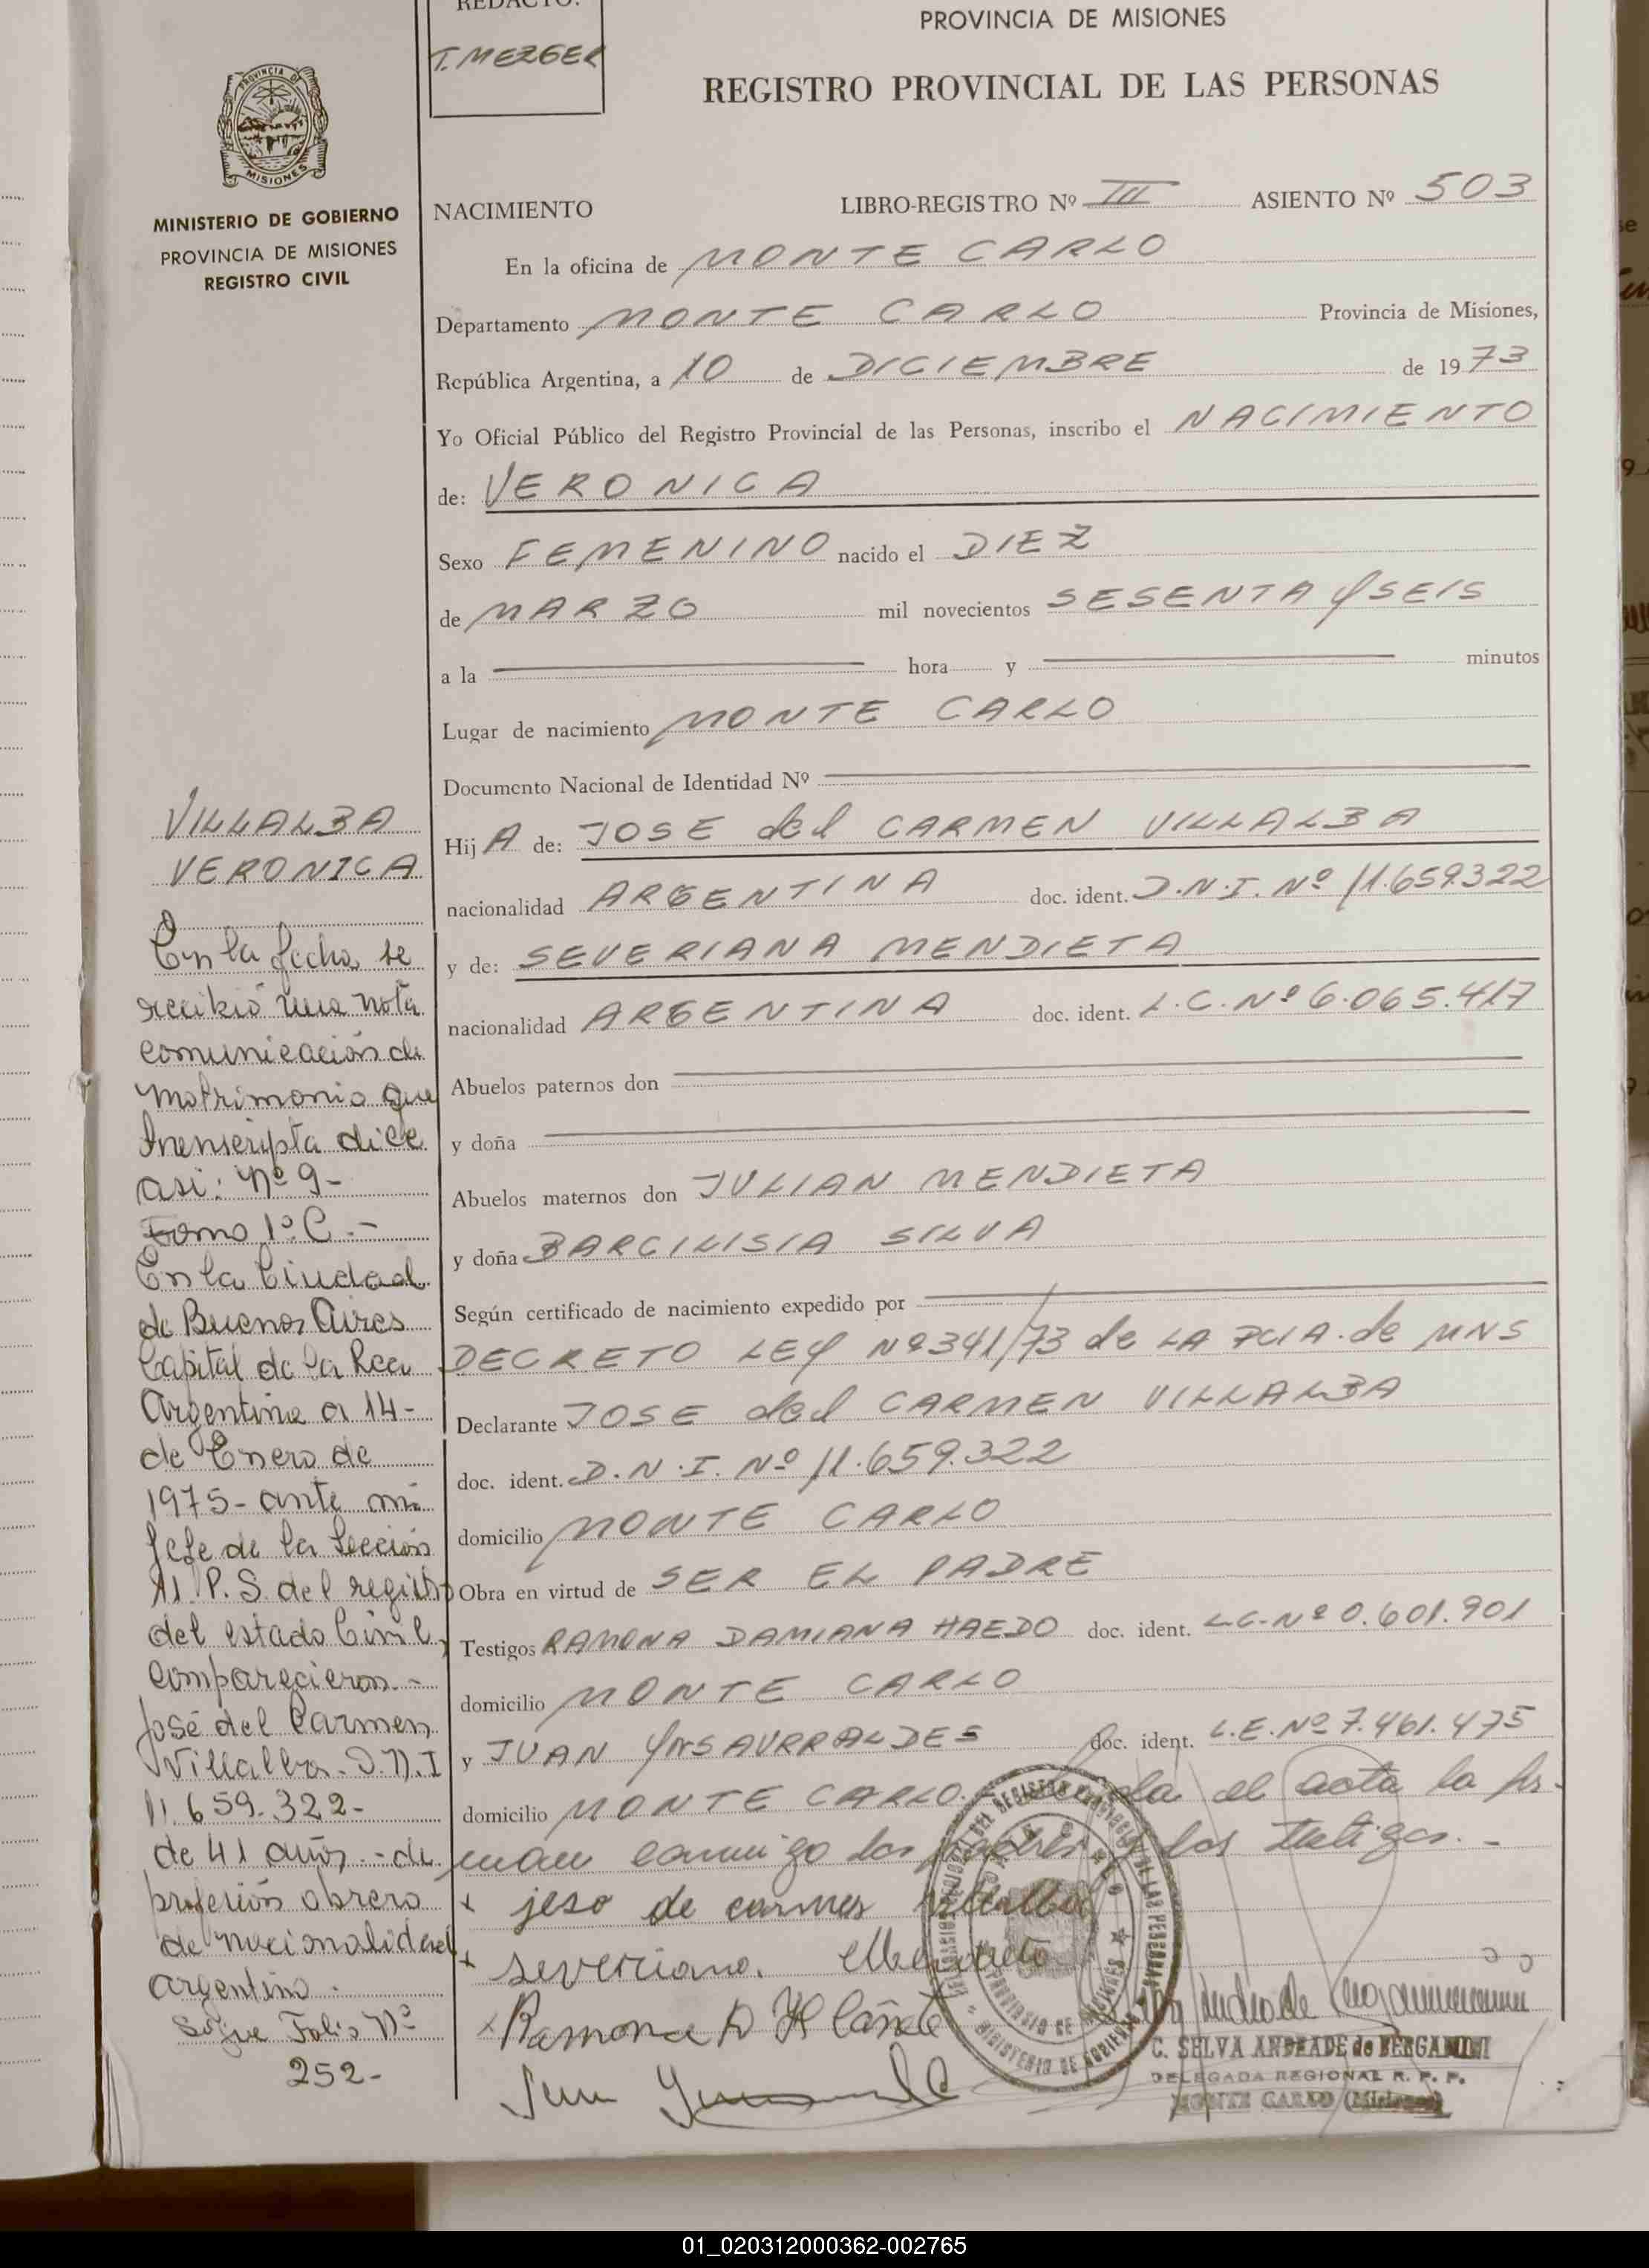 REDACTO:
T. MEZGER
PROVINCIA DE MISIONES
REGISTRO PROVINCIAL DE LAS PERSONAS
PROVINCIA DE
MISIONES
MINISTERIO DE GOBIERNO
PROVINCIA DE MISIONES
REGISTRO CIVIL
NACIMIENTO LIBRO-REGISTRO Nº III ASIENTO Nº 503
En la oficina de MONTE CARLO
Departamento MONTE CARLO Provincia de Misiones,
República Argentina, a 10 de DICIEMBRE de 1973
Yo Oficial Público del Registro Provincial de las Personas, inscribo el NACIMIENTO
de: VERONICA
Sexo FEMENINO nacido el DIEZ
de MARZO mil novecientos SESENTA y SEIS
a la hora y minutos
Lugar de nacimiento MONTE CARLO
Documento Nacional de Identidad Nº
HijA de: JOSE del CARMEN VILLALBA
nacionalidad ARGENTINA doc. ident. D.N.I. Nº 11.659.322
y de: SEVERIANA MENDIETA
nacionalidad ARGENTINA doc. ident. L.C. Nº 6.065.417
Abuelos paternos don
y doña
Abuelos maternos don JULIAN MENDIETA
y doña BARCILISIA SILVA
Según certificado de nacimiento expedido por
DECRETO LEY Nº 341/73 de LA PCIA. de MNS
Declarante JOSE del CARMEN VILLALBA
doc. ident. D.N.I. Nº 11.659.322
domicilio MONTE CARLO
Obra en virtud de SER EL PADRE
Testigos RAMONA DAMIANA HAEDO doc. ident. L.C. Nº 0.601.901
domicilio MONTE CARLO
y JUAN YNSAURRALDES doc. ident. L.E. Nº 7.461.475
domicilio MONTE CARLO. el acta la fir-
man conmigo los padres y los testigos.-
x jeso de carmes villalba
x severiana. Mendieta
x Ramona D H
C. SELVA ANDRADE de BERGAMINI
DELEGADA REGIONAL R. P. P.
MONTE CARLO (Misiones)
VILLALBA
VERONICA
En la fecha se
recibió una nota
comunicación de
matrimonio que
transcripta dice
asi: Nº 9-
Tomo 1º C.-
En la Ciudad
de Buenos Aires
Capital de la Rca
Argentina a 14-
de Enero de
1975- ante mi
Jefe de la Sección
11 P. S. del registro
del estado Civil,
comparecieron.-
José del Carmen
Villalba. D.N.I
11.659.322-
de 41 años.- de
profesión obrero
de nacionalidad
argentino.
Sigue Folio Nº
252-
01_020312000362-002765